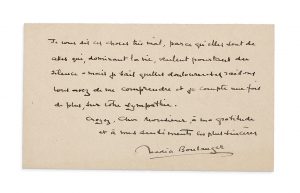 Je vous dis ces choses très mal, parce qu'elles sont de
celles qui, dominant la vie, veulent pourtant du
silence - mais je sais quelles douloureuses raisons
vous avez de me comprendre et je compte une fois
de plus, sur votre sympathie.
Croyez, Cher Monsieur, à ma gratitude
et à mes sentiments les plus sincères
Nadia Boulanger